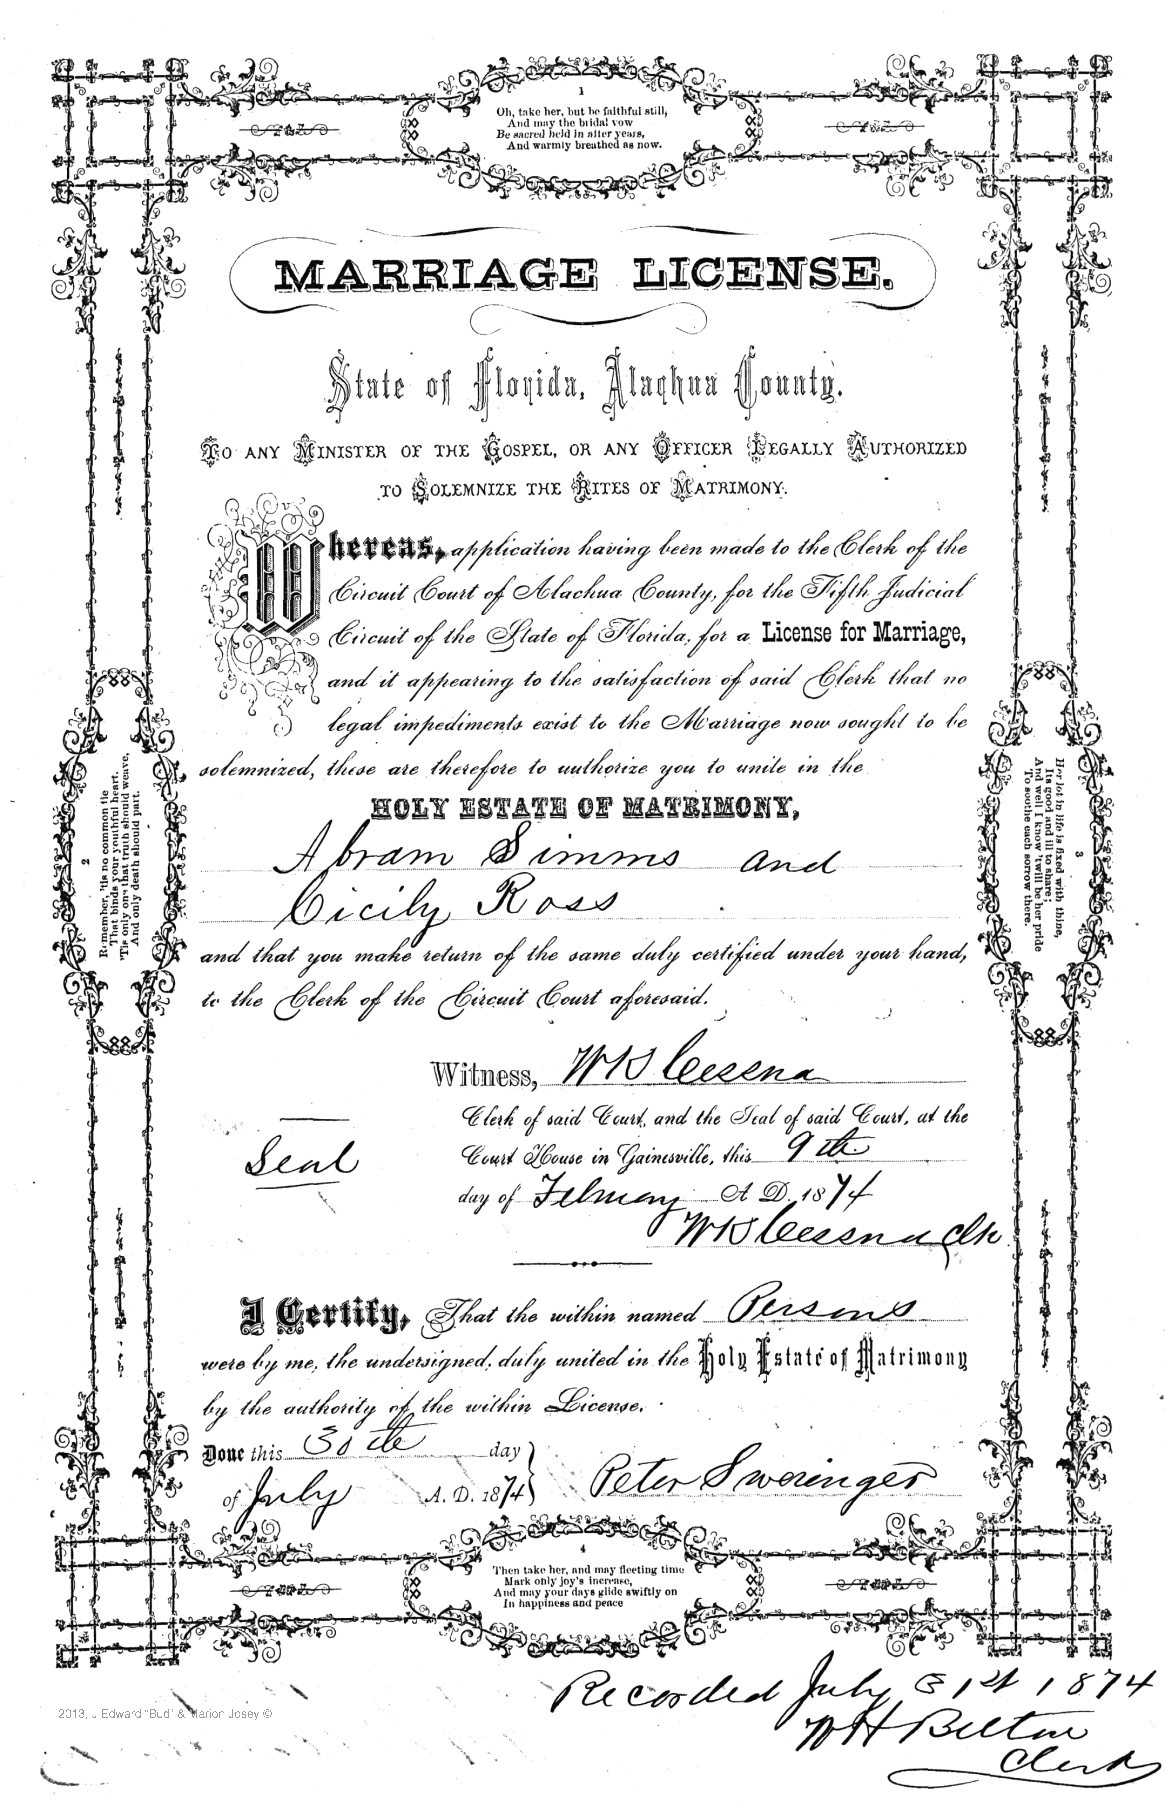 1
Oh, take her, but be faithful still,
And may the bidal vow
Be sacred held in after years,
And warmly breathed as now.
MARRIAGE LICENSE.
State of Florida, Alachua County.
TO ANY MINISTER OF THE GOSPEL, OR ANY OFFICER LEGALLY AUTHORIZED
TO SOLEMNIZE THE RITES OF MATRIMONY.
Whereas, application having been made to the Clerk of the
Circuit Court of Alachua County, for the Fifth Judicial
Circuit of the State of Florida, for a License for Marriage,
and it appearing to the satisfaction of said Clerk that no
legal impediments exist to the Marriage now sought to be
solemnized, these are therefore to authorize you to unite in the
HOLY ESTATE OF MATRIMONY,
Abram Simms and
Cicily Ross
and that you make return of the same duly certified under your hand,
to the Clerk of the Circuit Court aforesaid.
2
Remember, 'tis no common tie
That binds your youthful heart.
'Tis only one that truth should weave,
And only death should part.
3
Her lot in life is fixed with thine,
Its good and ill to share;
And well I know 'twill be her pride
To soothe each sorrow there.
Witness, WKS Cessna
Clerk of said Court, and the Seal of said Court, at the
Seal
Court House in Gainesville, this 9th
day of February A. D. 1874
WKS Cessna Clk
I Certify, That the within named Persons
were by me, the undersigned, duly united in the Holy Estate of Matrimony
by the authority of the within License.
Done this 30th day
of July A. D. 1874
Peter Sweringer
4
Then take her, and may fleeting time
Mark only joy's increase,
And may your days glide swiftly on
In happiness and peace
Recorded July 31st 1874
WH Belton
Clerk
2013, Edward "Bud" & Marion Josey ©